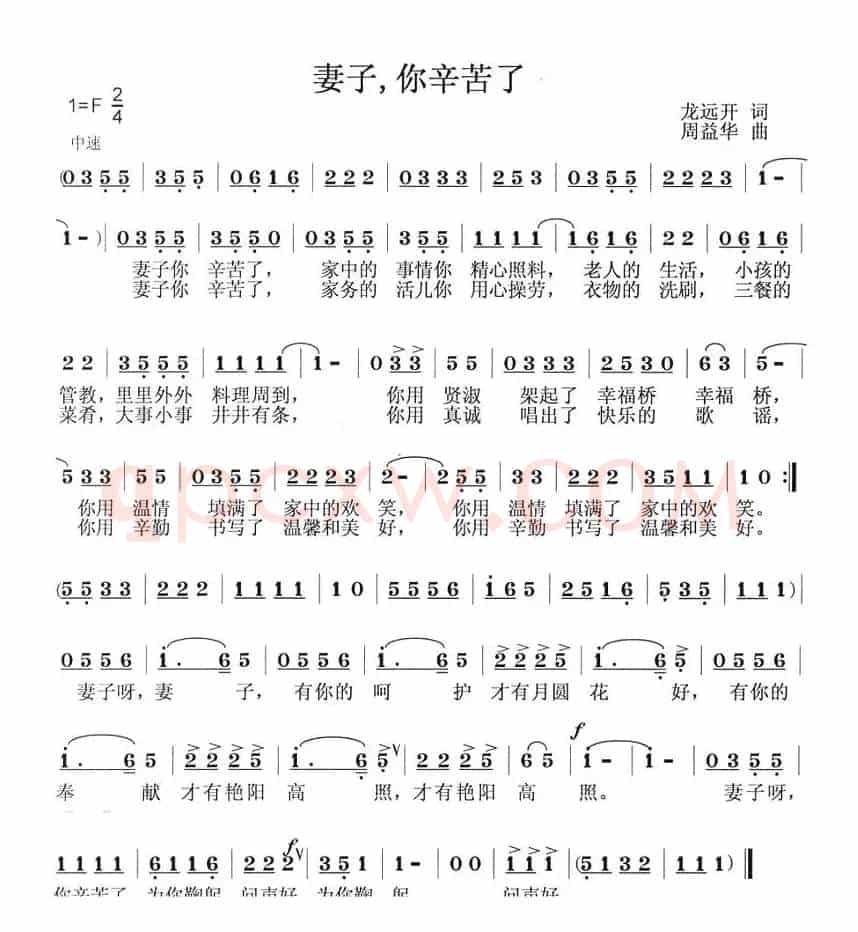 妻子,你辛苦了
1=F 2/4
龙远开 词
周益华 曲
中速
(0 3 5 5 | 3 5 5 | 0 6 1 6 | 2 2 2 | 0 3 3 3 | 2 5 3 | 0 3 5 5 | 2 2 2 3 | 1 - |
1 - ) | 0 3 5 5 | 3 5 5 0 | 0 3 5 5 | 3 5 5 | 1 1 1 1 | 1 6 1 6 | 2 2 | 0 6 1 6 |
妻子你 辛苦了, 家中的 事情你 精心照料, 老人的 生活, 小孩的
妻子你 辛苦了, 家务的 活儿你 用心操劳, 衣物的 洗刷, 三餐的
2 2 | 3 5 5 5 | 1 1 1 1 | 1 - | 0 3 3 | 5 5 | 0 3 3 3 | 2 5 3 0 | 6 3 | 5 - |
管教, 里里外外 料理周到, 你用 贤淑 架起了 幸福桥 幸福 桥,
菜肴, 大事小事 井井有条, 你用 真诚 唱出了 快乐的 歌 谣,
5 3 3 | 5 5 | 0 3 5 5 | 2 2 2 3 | 2 - | 2 5 5 | 3 3 | 0 2 2 2 | 3 5 1 1 | 1 0 :||
你用 温情 填满了 家中的欢 笑, 你用 温情 填满了 家中的欢 笑。
你用 辛勤 书写了 温馨和美 好, 你用 辛勤 书写了 温馨和美 好。
qpcxw.com
(5 5 3 3 | 2 2 2 | 1 1 1 1 | 1 0 | 5 5 5 6 | 1 6 5 | 2 5 1 6 | 5 3 5 | 1 1 1 ) |
0 5 5 6 | 1 . 6 5 | 0 5 5 6 | 1 . 6 5 | 2 2 2 5 | 1 . 6 5 | 0 5 5 6 |
妻子呀, 妻 子, 有你的 呵 护 才有月圆 花 好, 有你的
f
1 . 6 5 | 2 2 2 2 | 1 . 6 5 | 2 2 2 5 | 1 | 1 - | 1 - | 0 3 5 5 |
奉 献 才有艳阳 高 照, 才有艳阳 高 照。 妻子呀,
f
1 1 1 1 | 6 1 1 6 | 2 2 2 | 3 5 1 | 1 - | 0 0 | 1 1 1 | (5 1 3 2 | 1 1 1 ) ||
你辛苦了 为你鞠躬 问声好 为你鞠 躬 问声好